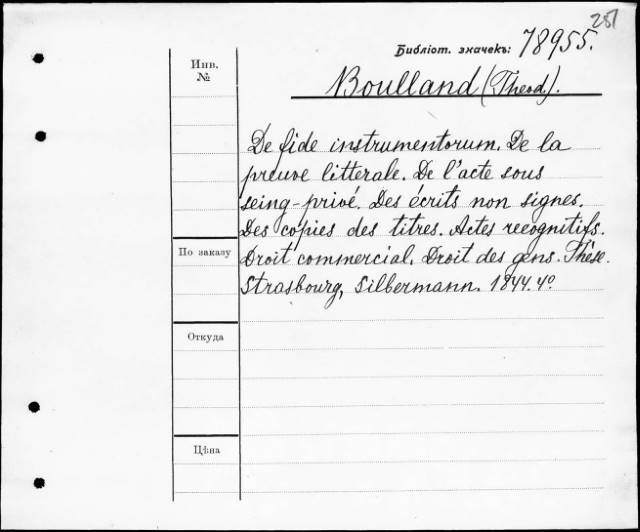 251
Библіот. значекъ: 78955.
Инв. №
Boulland (Theod.).
De fide instrumentorum. De la
preuve litterale. De l'acte sous
seing-privé. Des écrits non signes.
Des copies des titres. Actes recognitifs.
По заказу
Droit commercial. Droit des gens. Thèse.
Strasbourg, Silbermann. 1844. 4º.
Откуда
Цѣна